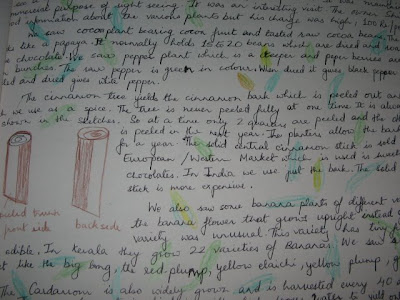 purpose of sight seeing. It was an interesting visit
information about the various plants but his charge was high, 100
We saw cocoa plant bearing cocoa fruit and tasted raw cocoa beans
is like a papaya. It normally holds 15 to 20 beans which are dried and
chocolate. We saw pepper plant which is a creeper and pepper berries are
in bunches. The raw pepper is green in colour. When dried it gives black pepper
and dried gives white pepper.
The cinnamon tree yields the cinnamon bark which is peeled out and
we use as a spice. The tree is never peeled fully at one time. It is always
shown in the sketches. So at a time only 2 quarters are peeled and the
is peeled in the next year. The planters allow the bark
for a year. The solid central cinnamon stick is sold
European / Western Market which is used in
chocolates. In India we use just the bark. The solid
stick is more expensive.
peeled trunk
front side
back side
We also saw some banana plants of different
the banana flower that grows upright instead of
variety was unusual. This variety has tiny
edible. In Kerala they grow 22 varieties of Bananas. We saw
like the big bong, the red plump, yellow elaichi, yellow plump,
The Cardamom is also widely grown and is harvested every 40